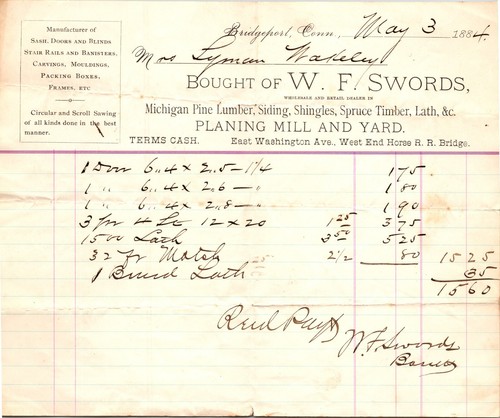 Manufacturer of
Sash, Doors and Blinds
Stair Rails and Banisters,
Carvings, Mouldings,
Packing Boxes,
Frames, etc
Circular and Scroll Sawing
of all kinds done in the best
manner.
Bridgeport, Conn., May 3 1884.
Mrs Lyman Wakeley
Bought of W. F. SWORDS,
WHOLESALE AND RETAIL DEALER IN
Michigan Pine Lumber, Siding, Shingles, Spruce Timber, Lath, &c.
PLANING MILL AND YARD.
TERMS CASH. East Washington Ave., West End Horse R. R. Bridge.
1 Door 6,,4 x 2,,5 — 1 1/4 175
1 ,, 6,,4 x 2,,6 — ,, 180
1 ,, 6,,4 x 2,,8 — ,, 190
3 pr 4 Lt 12 x 20 1 25 375
1500 Lath 3 50 525
32 ft Match 2 1/2 80 1525
1 Bund Lath 35
1560
Recd Payt
W. F. Swords